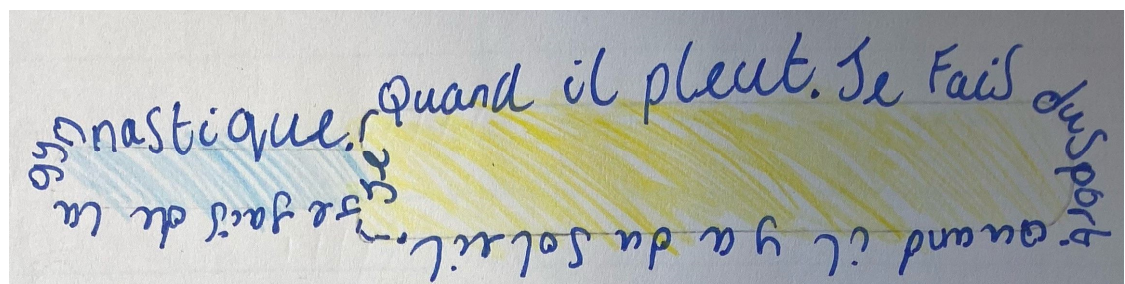 Quand il pleut. Je Fais
du Sport.
Quand il y a du Soleil.
Je fais de la
gymnastique.